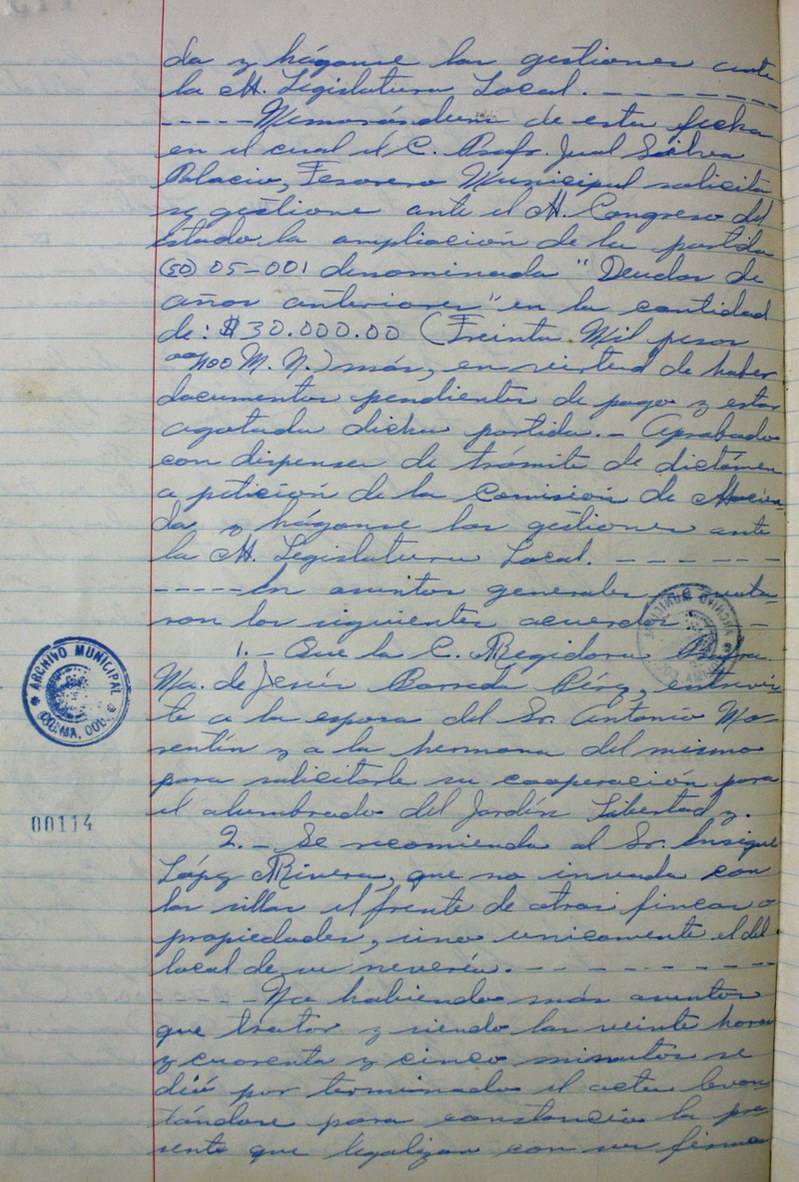 da y háganse las gestiones ante
la H. Legislatura Local. - - - - - - - -
- - - - - Memorándum de esta fecha
en el cual el C. Profr. Jual Silva
Palacio, Tesorero Municipal solicita
se gestione ante el H. Congreso del
Estado la ampliación de la partida
(50) 05-001 denominada "Deudas de
años anteriores" en la cantidad
de: $30.000.00 (Treinta Mil pesos
00/100 M. N.) más, en virtud de haber
documentos pendientes de pago y estar
agotada dicha partida.- Aprobado
con dispensa de trámite de dictámen
a petición de la Comisión de Hacien-
da y háganse las gestiones ante
la H. Legislatura Local. - - - - - - -
- - - - - En asuntos generales se
ron los siguientes acuerdos:
1.- Que la C. Regidora Profra.
Ma. de Jesús Barreda Pérez, entrevis
te a la esposa del Sr. Antonio Mo-
rentín y a la hermana del mismo
para solicitarle su cooperación para
el alumbrado del Jardín Libertad y.
2.- Se recomienda al Sr. Enrique
López Rivera, que no invada con
las sillas el frente de otras fincas o
propiedades, sino unicamente el del
local de su nevería. - - - - - - - - - -
- - - - - No habiendo más asuntos
que tratar y siendo las veinte horas
y cuarenta y cinco minutos se
dió por terminado el acta levan
tándose para constancia la pre
sente que legalizan con sus firmas
ARCHIVO MUNICIPAL
COLIMA, COL.
00114